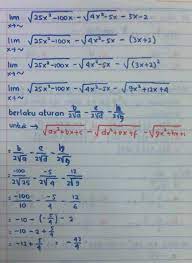 lim x→~ √25x²-100x - √4x²-5x - 3x-2
lim x→~ √25x²-100x - √4x²-5x - (3x+2)
lim x→~ √25x²-100x - √4x²-5x - √(3x+2)²
lim x→~ √25x²-100x - √4x²-5x - √9x²+12x+4
berlaku aturan b/2√a - e/2√d - h/2√g
untuk → √ax²+bx+c - √dx²+ex+f - √gx²+hx+i
= b/2√a - e/2√d - h/2√g
= -100/2√25 - -5/2√4 - 12/2√9
= -100/10 - -5/4 - 12/6
= -10 - (-5/4) - 2
= -10 - 2 + 5/4
= -12 + 5/4 = -43/4